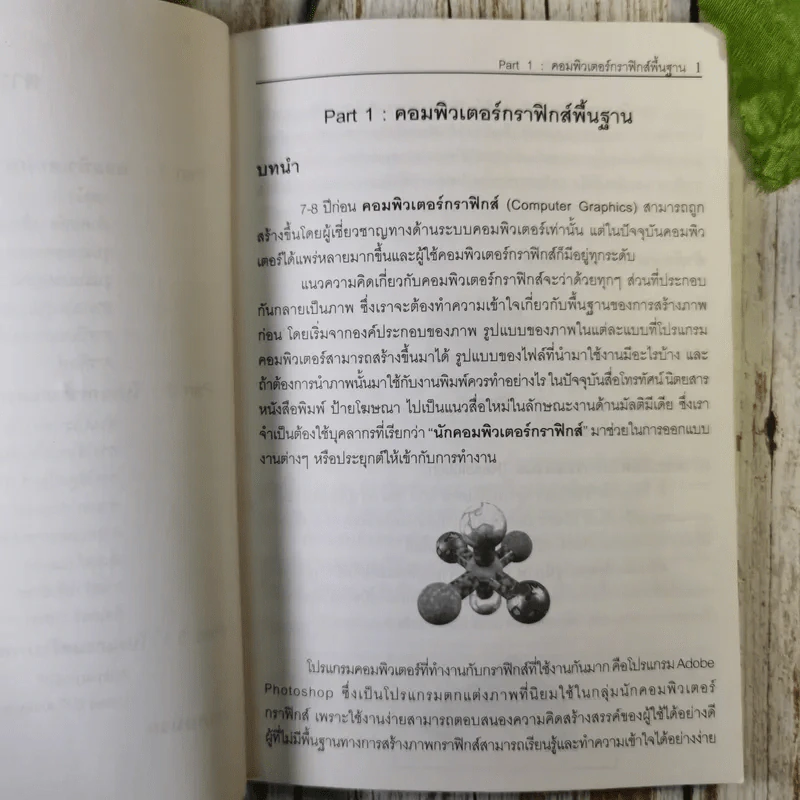 Part 1 : คอมพิวเตอร์กราฟิกส์พื้นฐาน 1
Part 1 : คอมพิวเตอร์กราฟิกส์พื้นฐาน
บทนำ
7-8 ปีก่อน คอมพิวเตอร์กราฟิกส์ (Computer Graphics) สามารถถูก
สร้างขึ้นโดยผู้เชี่ยวชาญทางด้านระบบคอมพิวเตอร์เท่านั้น แต่ในปัจจุบันคอมพิว
เตอร์ได้แพร่หลายมากขึ้นและผู้ใช้คอมพิวเตอร์กราฟิกส์ก็มีอยู่ทุกระดับ
แนวความคิดเกี่ยวกับคอมพิวเตอร์กราฟิกส์จะว่าด้วยทุกๆ ส่วนที่ประกอบ
กันกลายเป็นภาพ ซึ่งเราจะต้องทำความเข้าใจเกี่ยวกับพื้นฐานของการสร้างภาพ
ก่อน โดยเริ่มจากองค์ประกอบของภาพ รูปแบบของภาพในแต่ละแบบที่โปรแกรม
คอมพิวเตอร์สามารถสร้างขึ้นมาได้ รูปแบบของไฟล์ที่นำมาใช้งานมีอะไรบ้าง และ
ถ้าต้องการนำภาพนั้นมาใช้กับงานพิมพ์ควรทำอย่างไร ในปัจจุบันสื่อโทรทัศน์ นิตยสาร
หนังสือพิมพ์ ป้ายโฆษณา ไปเป็นแนวสื่อใหม่ในลักษณะงานด้านมัลติมีเดีย ซึ่งเรา
จำเป็นต้องใช้บุคลากรที่เรียกว่า “นักคอมพิวเตอร์กราฟิกส์” มาช่วยในการออกแบบ
งานต่างๆ หรือประยุกต์ให้เข้ากับการทำงาน
โปรแกรมคอมพิวเตอร์ที่ทำงานกับกราฟิกส์ที่ใช้งานกันมาก คือโปรแกรม Adobe
Photoshop ซึ่งเป็นโปรแกรมตกแต่งภาพที่นิยมใช้ในกลุ่มนักคอมพิวเตอร์
กราฟิกส์ เพราะใช้งานง่ายสามารถตอบสนองความคิดสร้างสรรค์ของผู้ใช้ได้อย่างดี
ผู้ที่ไม่มีพื้นฐานทางการสร้างภาพกราฟิกส์สามารถเรียนรู้และทำความเข้าใจได้อย่างง่าย